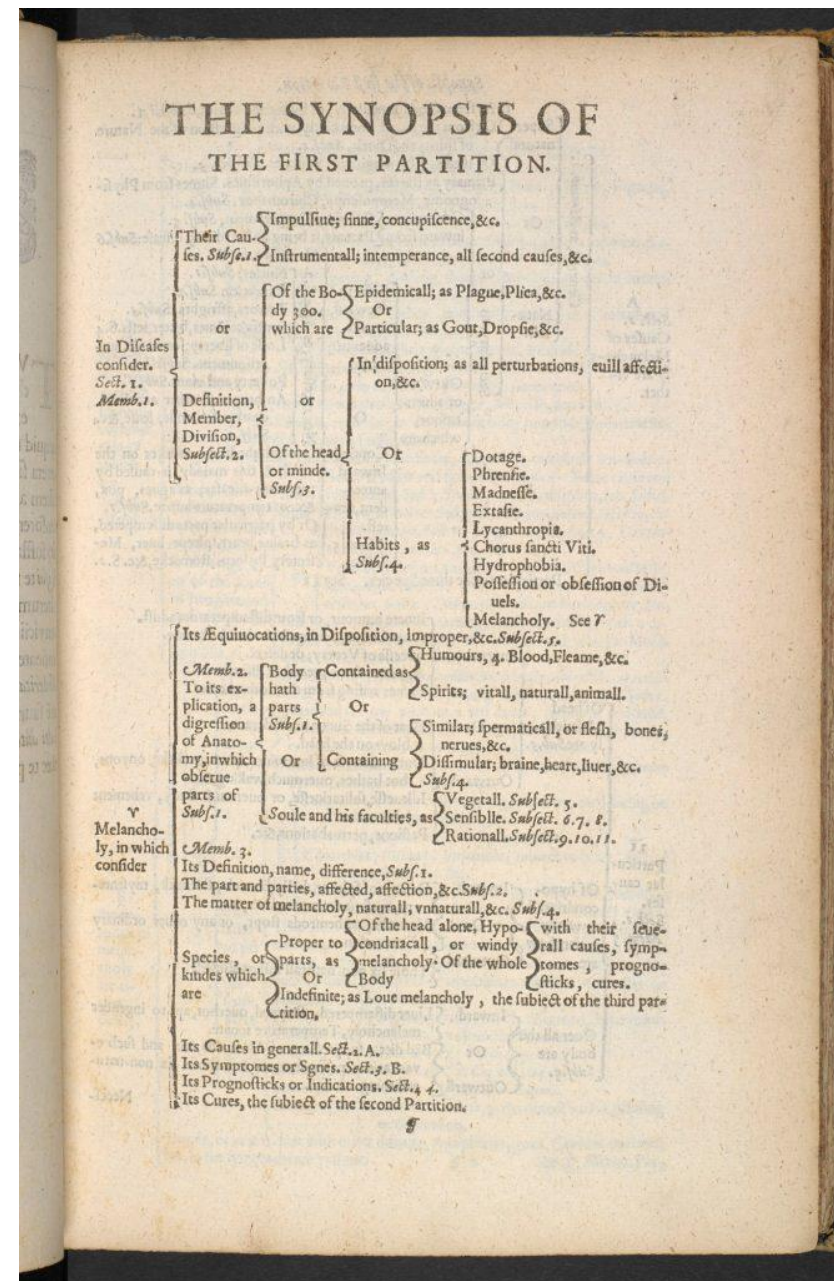 THE SYNOPSIS OF
THE FIRST PARTITION.
In Diſeaſes
conſider.
Sect. 1.
Memb.1.
Their Cau-
ſes. Subſe.1.
Impulſiue; ſinne, concupiſcence,&c.
Inſtrumentall; intemperance, all ſecond cauſes,&c.
or
Definition,
Member,
Diviſion,
Subſect.2.
Of the Bo-
dy 300.
which are
Epidemicall; as Plague,Plica,&c.
Or
Particular; as Gout,Dropſie,&c.
or
Of the head
or minde.
Subſ.3.
In diſpoſition; as all perturbations, euill affecti-
on,&c.
Or
Habits , as
Subſ.4.
Dotage.
Phrenſie.
Madneſſe.
Extaſie.
Lycanthropia.
Chorus ſancti Viti.
Hydrophobia.
Poſſeſſion or obſeſſion of Di-
uels.
Melancholy. See ♈
♈
Melancho-
ly, in which
conſider
Its Æquiuocations, in Diſpoſition, Improper,&c.Subſect.5.
Memb.2.
To its ex-
plication, a
digreſſion
of Anato-
my,in which
obſerue
parts of
Subſ.1.
Body
hath
parts
Subſ.1.
Contained as
Humours, 4. Blood,Fleame,&c.
Spirits; vitall, naturall,animall.
Or
Containing
Similar; ſpermaticall, or fleſh, bones,
nerues,&c.
Diſſimular; braine,heart,liuer,&c.
Subſ.4.
Or
Soule and his faculties, as
Vegetall. Subſect. 5.
Senſiblle. Subſect. 6.7. 8.
Rationall.Subſect.9.10.11.
Memb. 3.
Its Definition, name, difference,Subſ.1.
The part and parties, affected, affection,&c.Subſ.2.
The matter of melancholy, naturall, vnnaturall,&c. Subſ.4.
Species , or
kindes which
are
Proper to
parts, as
Of the head alone, Hypo-
condriacall , or windy
melancholy. Of the whole
Body
with their ſeue-
rall cauſes, ſymp-
tomes , progno-
ſticks , cures.
Or
Indefinite; as Loue melancholy , the ſubiect of the third par-
tition.
Its Cauſes in generall.Sect.2. A.
Its Symptomes or Sgnes. Sect.3. B.
Its Prognoſticks or Indications. Sect.4 4.
Its Cures, the ſubiect of the ſecond Partition.
¶